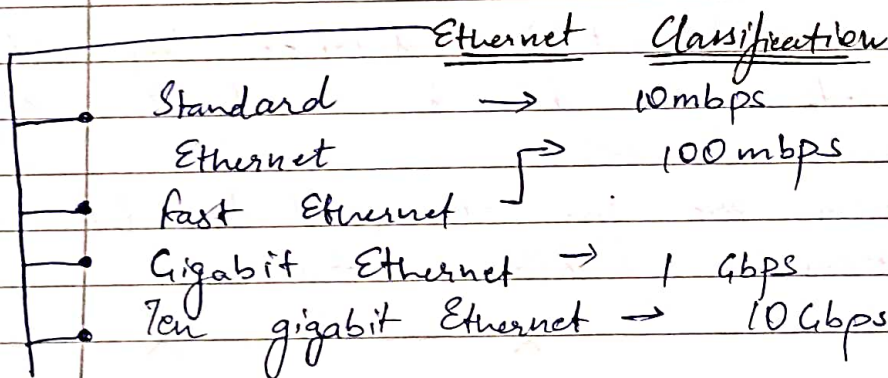 Ethernet Classification
Standard → 10mbps
Ethernet → 100mbps
fast Ethernet
Gigabit Ethernet → 1 Gbps
Ten gigabit Ethernet → 10 Gbps